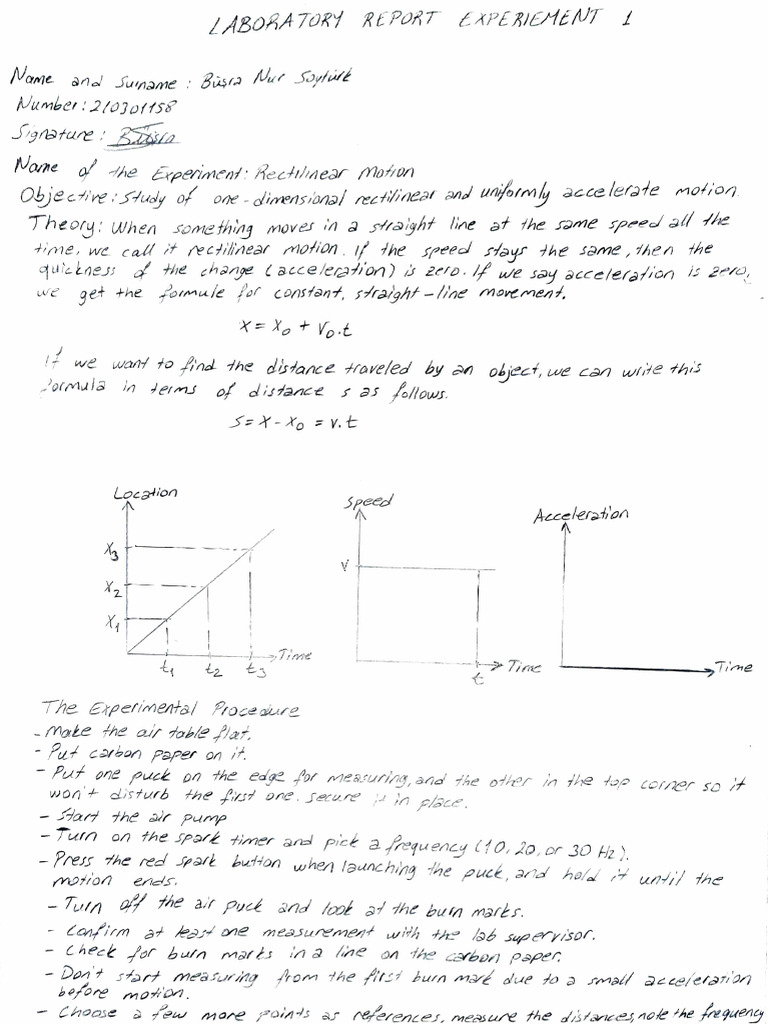 LABORATORY REPORT EXPERIEMENT 1
Name and Surname: Büşra Nur Soytürk
Number: 210301158
Signature: Büşra
Name of the Experiment: Rectilinear Motion
Objective: Study of one-dimensional rectilinear and uniformly accelerate motion.
Theory: When something moves in a straight line at the same speed all the
time, we call it rectilinear motion. If the speed stays the same, then the
quickness of the change (acceleration) is zero. If we say acceleration is zero,
we get the formule for constant, straight-line movement.
x = x₀ + v₀.t
If we want to find the distance traveled by an object, we can write this
formula in terms of distance s as follows.
s = x - x₀ = v.t
Location
Speed
Acceleration
x₃
x₂
x₁
v
t₁ t₂ t₃ Time
t Time
Time
The Experimental Procedure
- Make the air table flat.
- Put carbon paper on it.
- Put one puck on the edge for measuring, and the other in the top corner so it
won't disturb the first one. Secure it in place.
- Start the air pump
- Turn on the spark timer and pick a frequency (10, 20, or 30 Hz).
- Press the red spark button when launching the puck, and hold it until the
motion ends.
- Turn off the air puck and look at the burn marks.
- Confirm at least one measurement with the lab supervisor.
- Check for burn marks in a line on the carbon paper.
- Don't start measuring from the first burn mark due to a small acceleration
before motion.
- Choose a few more points as references, measure the distances, note the frequency